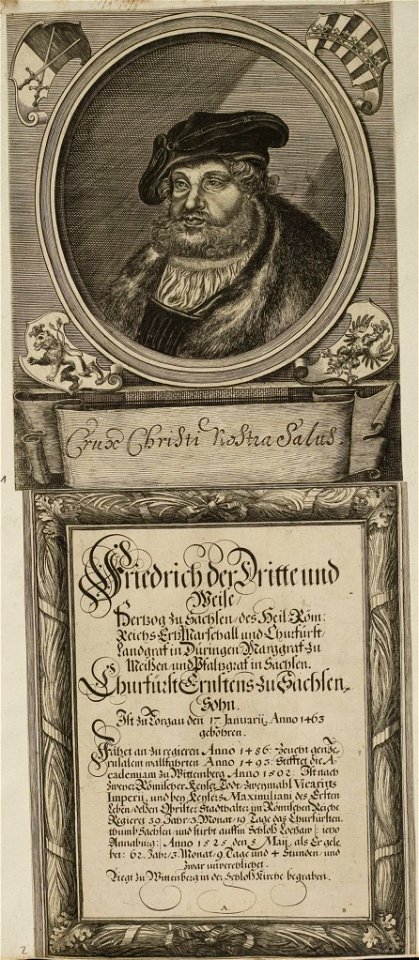 Crux Christi Nostra Salus.
Friedrich der Dritte und
Weise/
Hertzog zu Sachsen/des Heil: Röm:
Reichs Ertz Marschall und Churfürst/
Landgraf in Düringen Marggraf zu
Meißen/und Pfaltzgraf in Sachsen.
Churfürst Ernstens zu Sachsen,
Sohn.
Ist zu Torgau den 17 Januarij Anno 1463
gebohren.
Fähet an zu regieren Anno 1486. Zeucht gen Je-
rusalem wallfahrten Anno 1493. Stifftet die A-
cademiam zu Wittenberg Anno 1502. Ist nach
zweyer Römischer Keyser Todt/zweymahl Vicarius
Imperij, und bey Keysers Maximiliani des Ersten
Leben/dessen Öhrister Stadthalter im Römischen Reiche
Regieret 39 Jahr/3. Monat/19 Tage das Churfürsten-
thumb Sachsen/und stirbt auffm Schloß Lochaw/: ietzo
Annaburg: Anno 1525 den 5 Maij, als Er gele-
bet: 62. Jahr/3. Monat/9. Tage und 4 Stunden/und
zwar unverehlichet.
Liegt zu Wittenberg in der Schloß Kirche begraben.
A
1
2